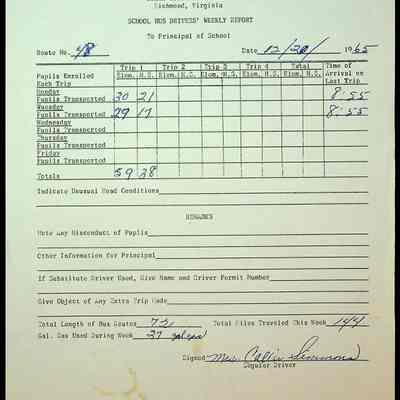 Richmond, Virginia
SCHOOL BUS DRIVERS' WEEKLY REPORT
To Principal of School
Route No. 48 Date 12/20/ 1965
Trip 1 Trip 2 Trip 3 Trip 4 Total Time of
Pupils Enrolled Elem. H.S. Elem. H.S. Elem. H.S. Elem. H.S. Elem. H.S. Arrival on
Each Trip Last Trip
Monday
Pupils Transported 30 21 8:55
Tuesday
Pupils Transported 29 17 8:55
Wednesday
Pupils Transported
Thursday
Pupils Transported
Friday
Pupils Transported
Totals 59 38
Indicate Unusual Road Conditions
REMARKS
Note Any Misconduct of Pupils
Other Information for Principal
If Substitute Driver Used, Give Name and Driver Permit Number
Give Object of Any Extra Trip Made
Total Length of Bus Routes 72 Total Miles Traveled This Week 144
Gal. Gas Used During Week 27
Signed Mrs. Callie Simmons
Regular Driver